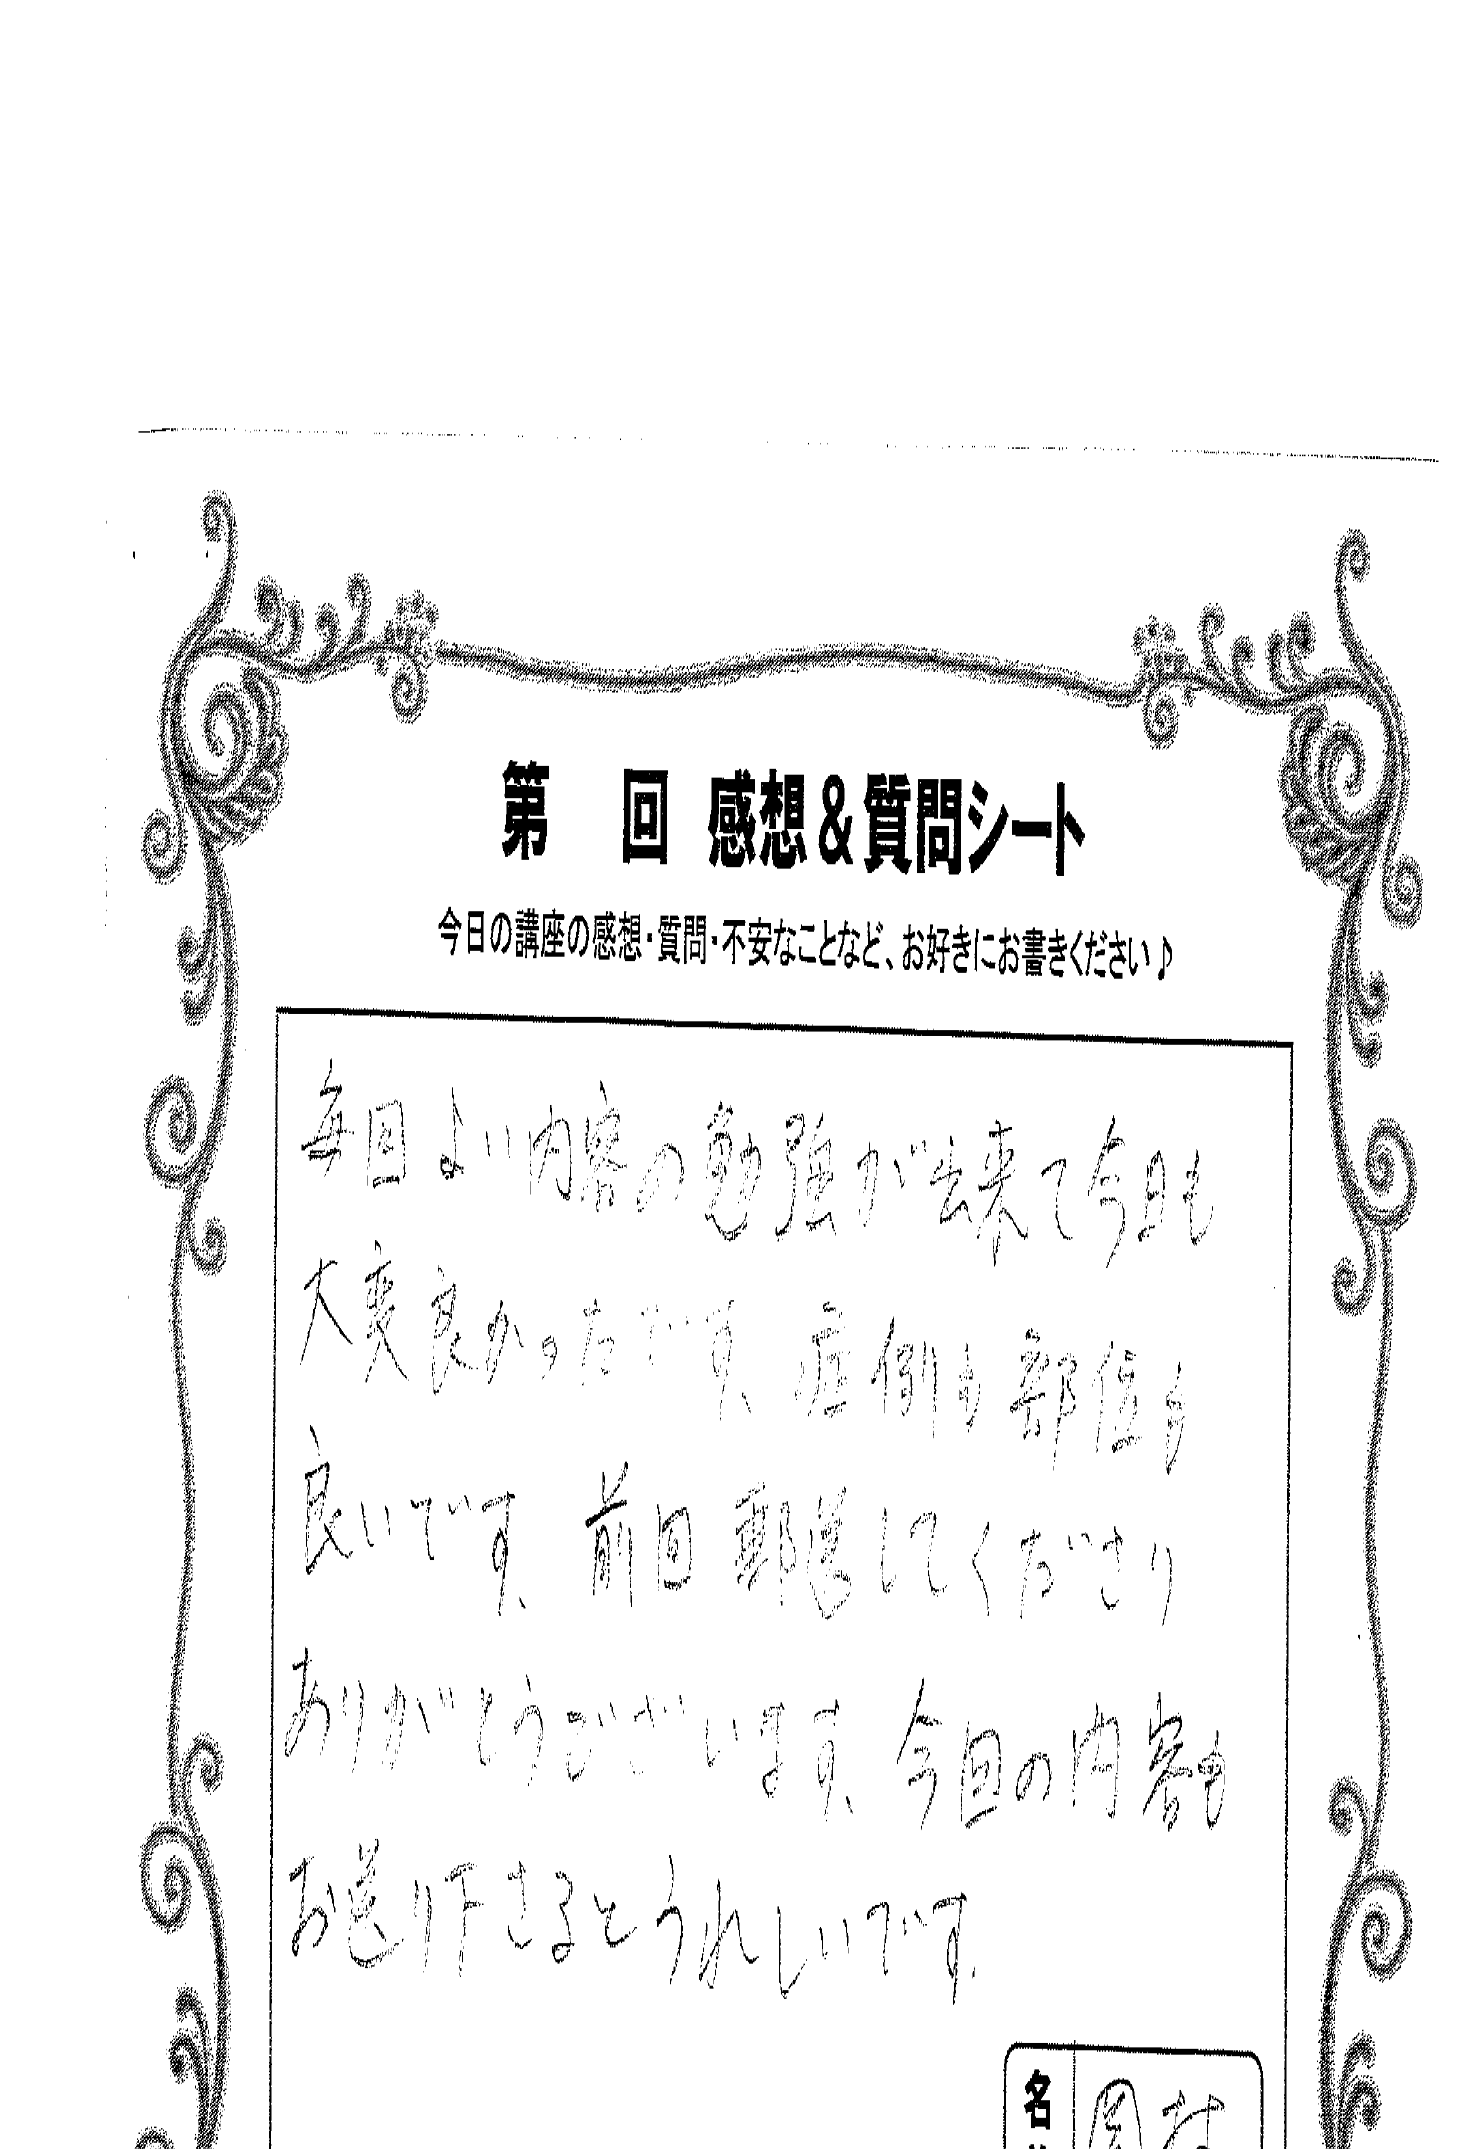 第　回 感想＆質問シート
今日の講座の感想・質問・不安なことなど、お好きにお書きください♪
毎回よい内容の勉強が出来て今日も
大変良かったです、症例も部位も
良いです、前回郵送してくださり
ありがとうございます、今回の内容も
お送り下さるとうれしいです.
名